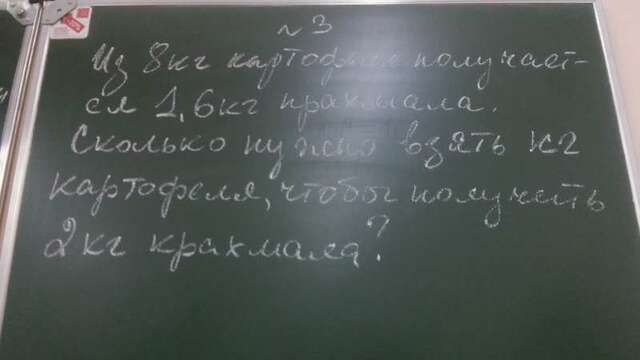 №3
Из 8кг картофеля получает-
ся 1,6кг крахмала.
Сколько нужно взять кг
картофеля, чтобы получить
2кг крахмала?